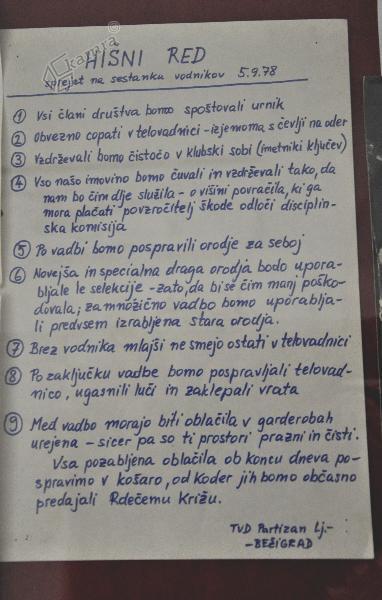 kamra
HIŠNI RED
sprejet na sestanku vodnikov 5.9.78
1 Vsi člani društva bomo spoštovali urnik
2 Obvezno copati v telovadnici - izjemoma s čevlji na oder
3 Vzdrževali bomo čistočo v klubski sobi (imetniki ključev)
4 Vso našo imovino bomo čuvali in vzdrževali tako, da
nam bo čim dlje služila - o višini povračila, ki ga
mora plačati povzročitelj škode odloči disciplin-
ska komisija
5 Po vadbi bomo pospravili orodje za seboj
6 Novejša in specialna draga orodja bodo upora-
bljale le selekcije - zato, da bi se čim manj poško-
dovala; za množično vadbo bomo uporablja-
li predvsem izrabljena stara orodja.
7 Brez vodnika mlajši ne smejo ostati v telovadnici
8 Po zaključku vadbe bomo pospravljali telovad-
nico, ugasnili luči in zaklepali vrata
9 Med vadbo morajo biti oblačila v garderobah
urejena - sicer pa so ti prostori prazni in čisti.
Vsa pozabljena oblačila ob koncu dneva po-
spravimo v košaro, od koder jih bomo občasno
predajali Rdečemu Križu.
TVD Partizan Lj.-
-BEŽIGRAD